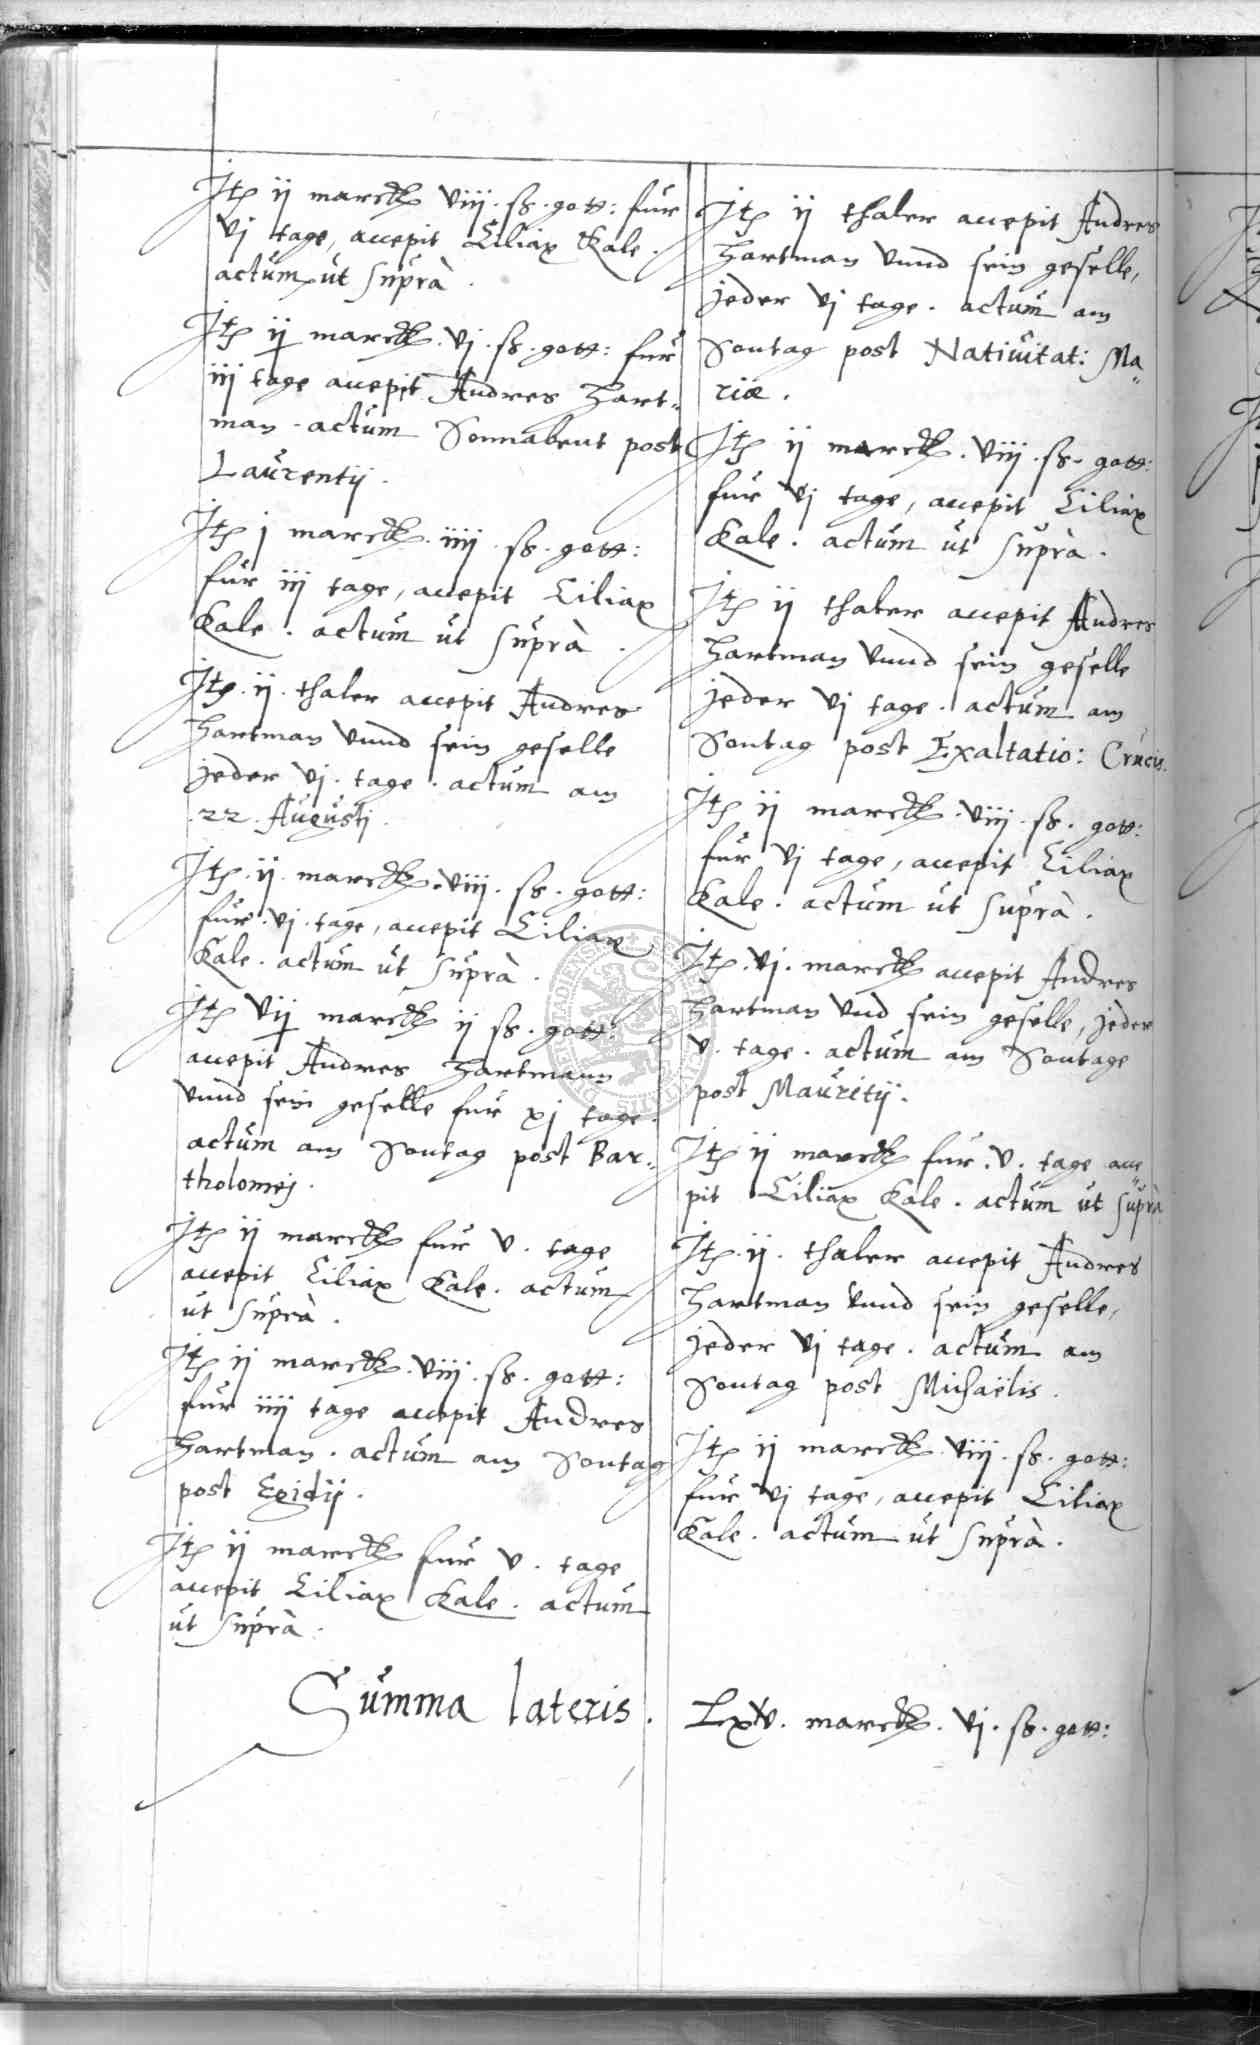 Itē ij marck viij. ß. gott: fur
vj tage, accepit Ciliax Kale.
actum ut suprà.
Itē ij marck. vj. ß. gott: fur
iij tage accepit Andres Hart„
man. actum Sonnabent post
Laurentij.
Itē j marck. iiij. ß. gott:
fur iij tage, accepit Ciliax
Kale. actum ut suprà.
Itē. ij. thaler accepit Andres
Hartman vnnd sein geselle
jeder vj. tage. actum am
.22. Augustj.
Itē. ij. marck. viij. ß. gott:
fur. vj. tage, accepit Ciliax
Kale. actum ut suprà.
Itē vij marck ij ß. gott:
accepit Andres Hartmann
vnnd sein geselle fur xj tage.
actum am Sontag post Bar„
tholomej.
Itē ij marck fur v. tage
accepit Ciliax Kale. actum
ut suprà.
Itē ij marck. viij. ß. gott:
fur iiij tage accepit Andres
Hartman. actum am Sontag
post Egidij.
Itē ij marck fur v. tage
accepit Ciliax Kale. actum
ut suprà.
Itē ij thaler accepit Andres
Hartman vnnd sein geselle,
jeder vj tage. actum am
Sontag post Nativitat: Ma„
riæ.
Itē ij marck. viij. ß. gott:
fur vj tage, accepit Ciliax
Kale. actum ut suprà.
Itē ij thaler accepit Andres
Hartman vnnd sein geselle
jeder vj tage. actum am
Sontag post Exaltatio: Crucis.
Itē ij marck. viij. ß. gott:
fur vj tage, accepit Ciliax
Kale. actum ut suprà.
Itē. vj. marck accepit Andres
Hartman vnd sein geselle, jeder
v. tage. actum am Sontage
post Mauritij.
Itē ij marck fur. v. tage acce„
pit Ciliax Kale. actum ut suprà
Itē. ij. thaler accepit Andres
Hartman vnnd sein geselle,
jeder vj tage. actum am
Sontag post Michaëlis.
Itē ij marck. viij. ß. gott:
fur vj tage, accepit Ciliax
Kale. actum ut suprà.
Summa lateris. Lxv. marck. vj. ß. gott: